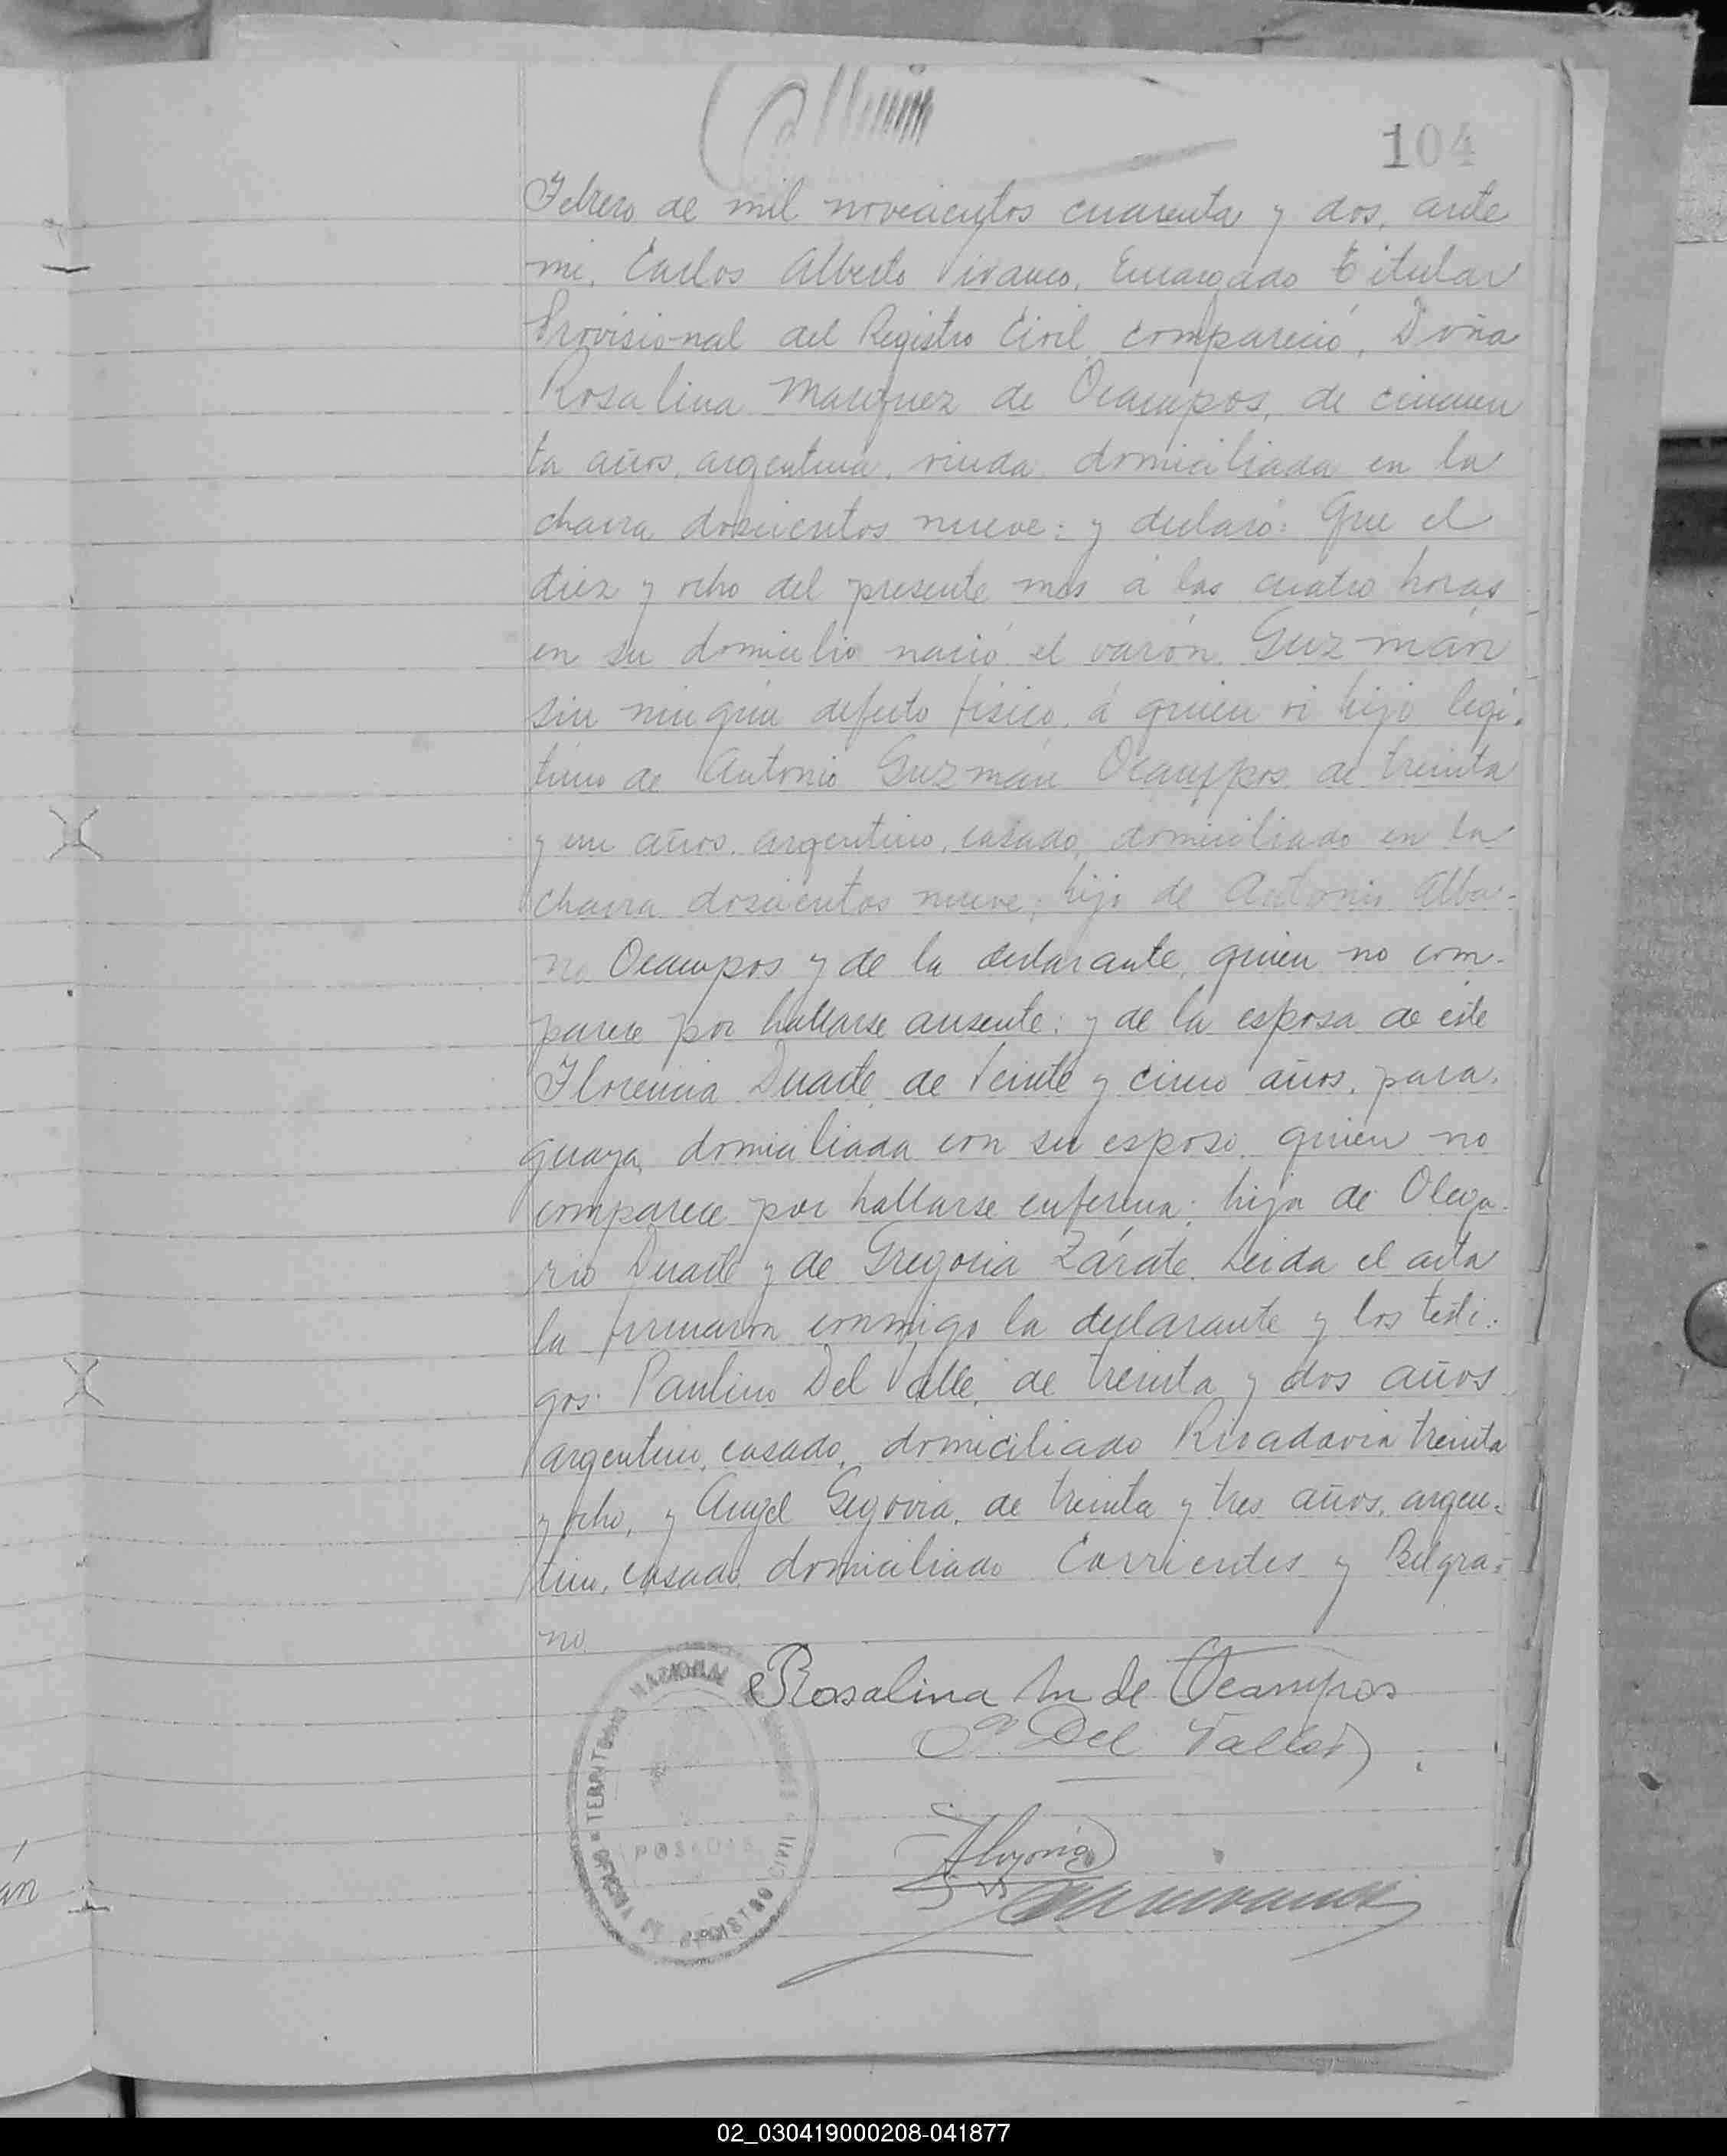 104
Febrero de mil novecientos cuarenta y dos, ante
mi, Carlos Alberto Vivanco, Encargado Titular
Provisional del Registro Civil compareció, Doña
Rosalina Marquez de Ocampos, de cincuen
ta años, argentina, viuda, domiciliada en la
chacra doscientos nueve: y declaró: Que el
diez y ocho del presente mes á las cuatro horas
en su domicilio nació el varón Guzmán
sin ningún defecto físico, á quien vi hijo legi-
timo de Antonio Guzmán Ocampos de treinta
y un años, argentino, casado, domiciliado en la
chacra doscientos nueve; hijo de Antonio Alba-
no Ocampos y de la declarante, quien no com-
parece por hallarse ausente: y de la esposa de éste
Florencia Duarte, de veinte y cinco años, para-
guaya, domiciliada con su esposo, quien no
comparece por hallarse enferma; hija de Olega-
rio Duarte y de Gregoria Zárate. Leida el acta
la firmaron conmigo la declarante y los testi-
gos: Paulino Del Valle, de treinta y dos años
argentino, casado, domiciliado Rivadavia treinta
y ocho, y Angel Segovia, de treinta y tres años, argen-
tino, casado, domiciliado Corrientes y Belgra-
no
Rosalina M de Ocampos
P. Del Valle
TERRITORIO NACIONAL DE MISIONES
POSADAS
OFICINA DE REGISTRO CIVIL
án
02_030419000208-041877